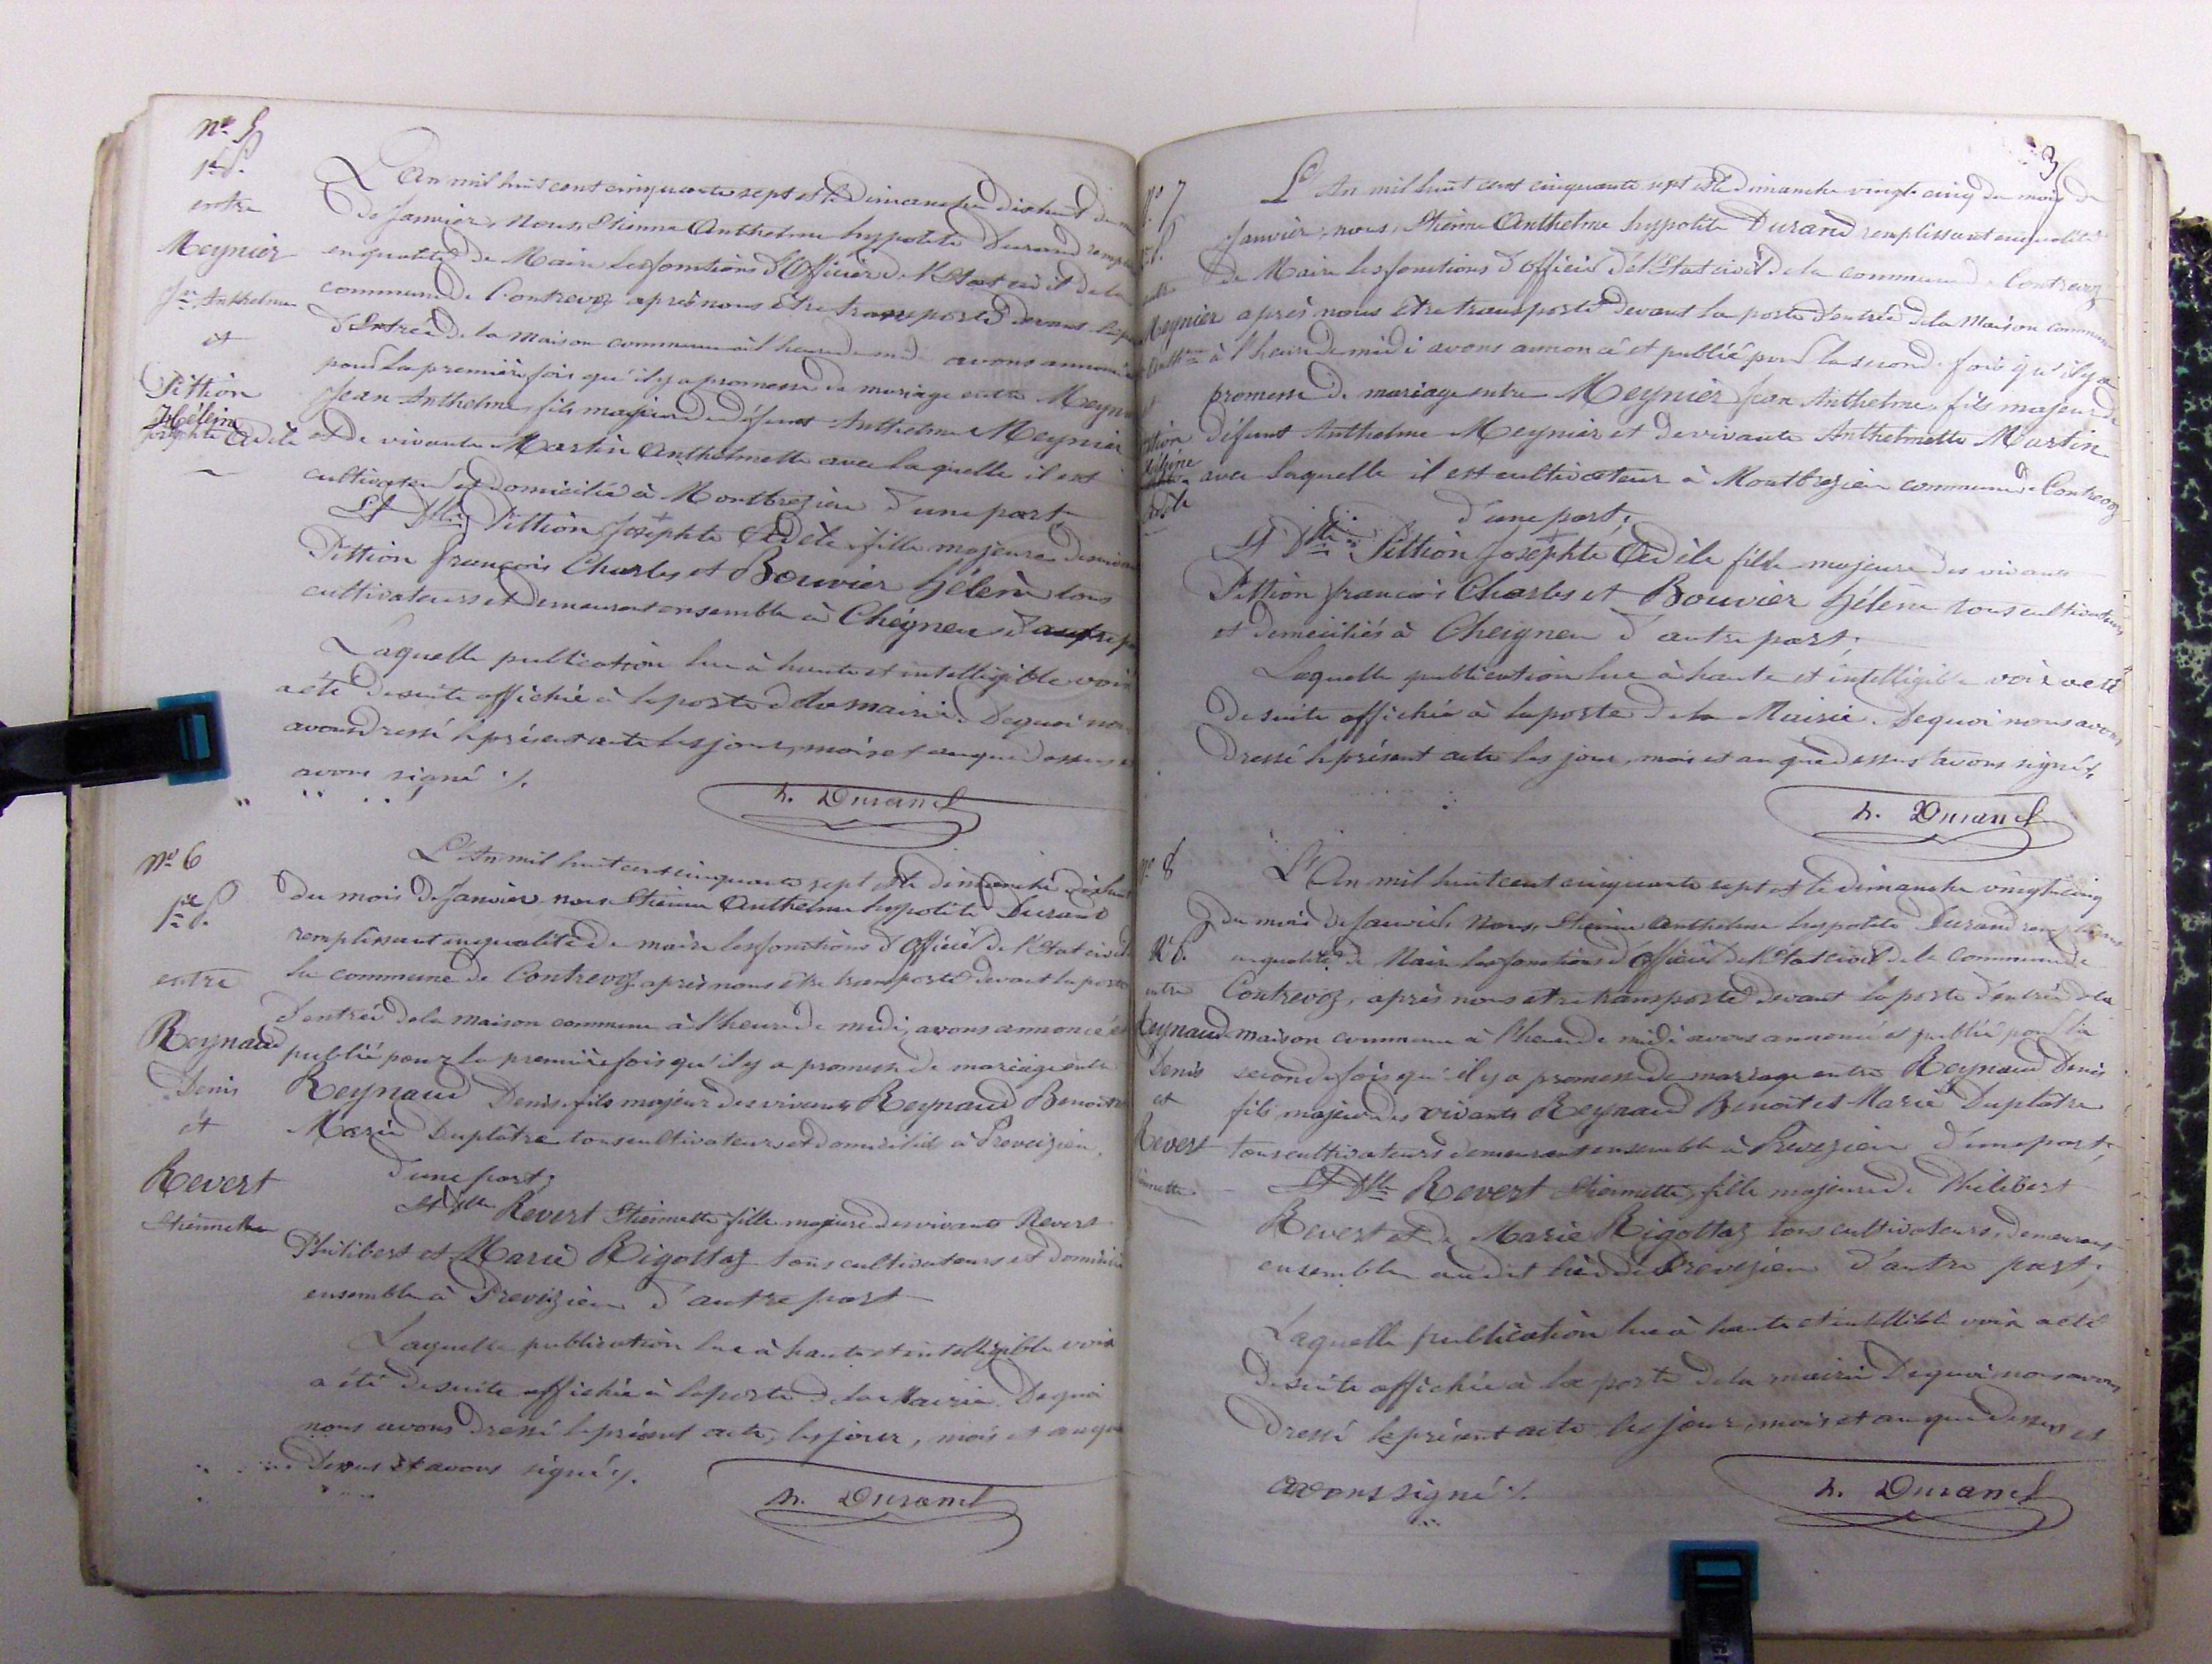 nº 5
1re P.
entre
Meynier
Jn Anthelme
et
Pittion
Hélène
Josephte Adèle
L'an mil huit cent cinquante sept et le Dimanche dixhuit du
de Janvier, nous, Etienne Anthelme hyppolite Durand
en qualité de Maire les fonctions d'Officier de l'Etat civil de la
commune de Contrevoz après nous être transporté devant la
d'Entrée de la Maison commune à l'heure de midi avons
pour la première fois qu'il y a promesse de mariage entre
Jean Anthelme, fils majeur de défunt Anthelme Meynier
et de vivante Martin Anthelmette avec laquelle il est
cultivateur et domicilié à Montbrezieu d'une part,
Et Dlle Pittion Josephte Adèle, fille majeure
Pittion françois Charles et Bouvier hélène tous
cultivateurs et demeurant ensemble à Cheignieu d'autre
Laquelle publication lue à haute et intelligible voix
a été de suite affichée à la porte de la mairie. De quoi
avons dressé le présent acte les jour, mois et an que dessus
avons signé ./.
h. Durand
nº 6
1re P.
entre
Reynaud
Denis
et
Revert
Etiennette
L'An mil huit cent cinquante sept et le dimanche dixhuit
du mois de Janvier nous Etienne Anthelme hyppolite Durand
remplissant en qualité de maire les fonctions d'Officier de l'Etat civil
la commune de Contrevoz après nous être transporté devant la porte
d'entrée de la maison commune à l'heure de midi, avons annoncé et
publié pour la première fois qu'il y a promesse de mariage entre
Reynaud Denis, fils majeur des vivants Reynaud Benoit
Marie Duplâtre tous cultivateurs et domiciliés à Preveizieu,
d'une part;
Et Dlle Revert Etiennette fille majeure des vivants Revert
Philibert et Marie Rigottaz tous cultivateurs et
ensemble à Preveizieu d'autre part
Laquelle publication lue à haute et intelligible voix
a été de suite affichée à la porte de la Mairie. De quoi
nous avons dressé le présent acte, les jour, mois et an que
dessus et avons signé ./.
h. Durand
3
nº 7
entre
Meynier
Anthme
Pittion
Hélène
Adèle
L'An mil huit cent cinquante sept et le Dimanche vingt cinq du mois de
Janvier, nous, Etienne Anthelme hyppolite Durand remplissant en qualité
de Maire les fonctions d'officier de l'Etat civil de la commune de Contrevoz
après nous être transporté devant la porte d'entrée de la Maison commune
à l'heure de midi avons annoncé et publié pour la seconde fois qu'il y a
promesse de mariage entre Meynier Jean Anthelme, fils majeur de
défunt Anthelme Meynier et de vivante Anthelmette Martin
avec laquelle il est cultivateur à Montbrezieu commune de Contrevoz
d'une part;
Et Dlle Pittion Josephte Adèle fille majeure des vivants
Pittion françois Charles et Bouvier hélène tous cultivateurs
et domiciliés à Cheigneu d'autre part;
Laquelle publication lue à haute et intelligible voix a été
de suite affichée à la porte de la Mairie. De quoi nous avons
dressé le présent acte les jour, mois et an que dessus et avons signé ./.
h. Durand
nº 8
2e P.
entre
Reynaud
Denis
et
Revert
Etiennette
L'An mil huit cent cinquante sept et le dimanche vingt cinq
du mois de Janvier, Nous, Etienne Anthelme hyppolite Durand remplissant
en qualité de Maire les fonctions d'officier de l'Etat civil de la Commune de
Contrevoz, après nous être transporté devant la porte d'entrée de la
maison commune à l'heure de midi avons annoncé et publié pour la
seconde fois qu'il y a promesse de mariage entre Reynaud Denis
fils majeur des vivants Reynaud Benoit et Marie Duplâtre
tous cultivateurs demeurant ensemble à Prevezieu d'une part;
Et Dlle Revert Etiennette, fille majeure de Philibert
Revert et de Marie Rigottaz tous cultivateurs, demeurant
ensemble audit lieu de Prevezieu d'autre part;
Laquelle publication lue à haute et intellible voix a été
de suite affichée à la porte de la mairie De quoi nous avons
dressé le présent acte les jour, mois et an que dessus et
avons signé ./.
h. Durand